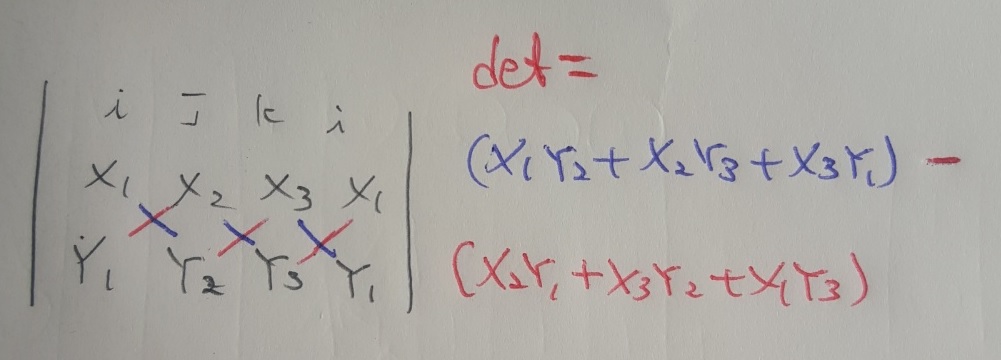 i j k i
X₁ X₂ X₃ X₁
Y₁ Y₂ Y₃ Y₁
det =
(X₁Y₂ + X₂Y₃ + X₃Y₁) −
(X₂Y₁ + X₃Y₂ + X₁Y₃)